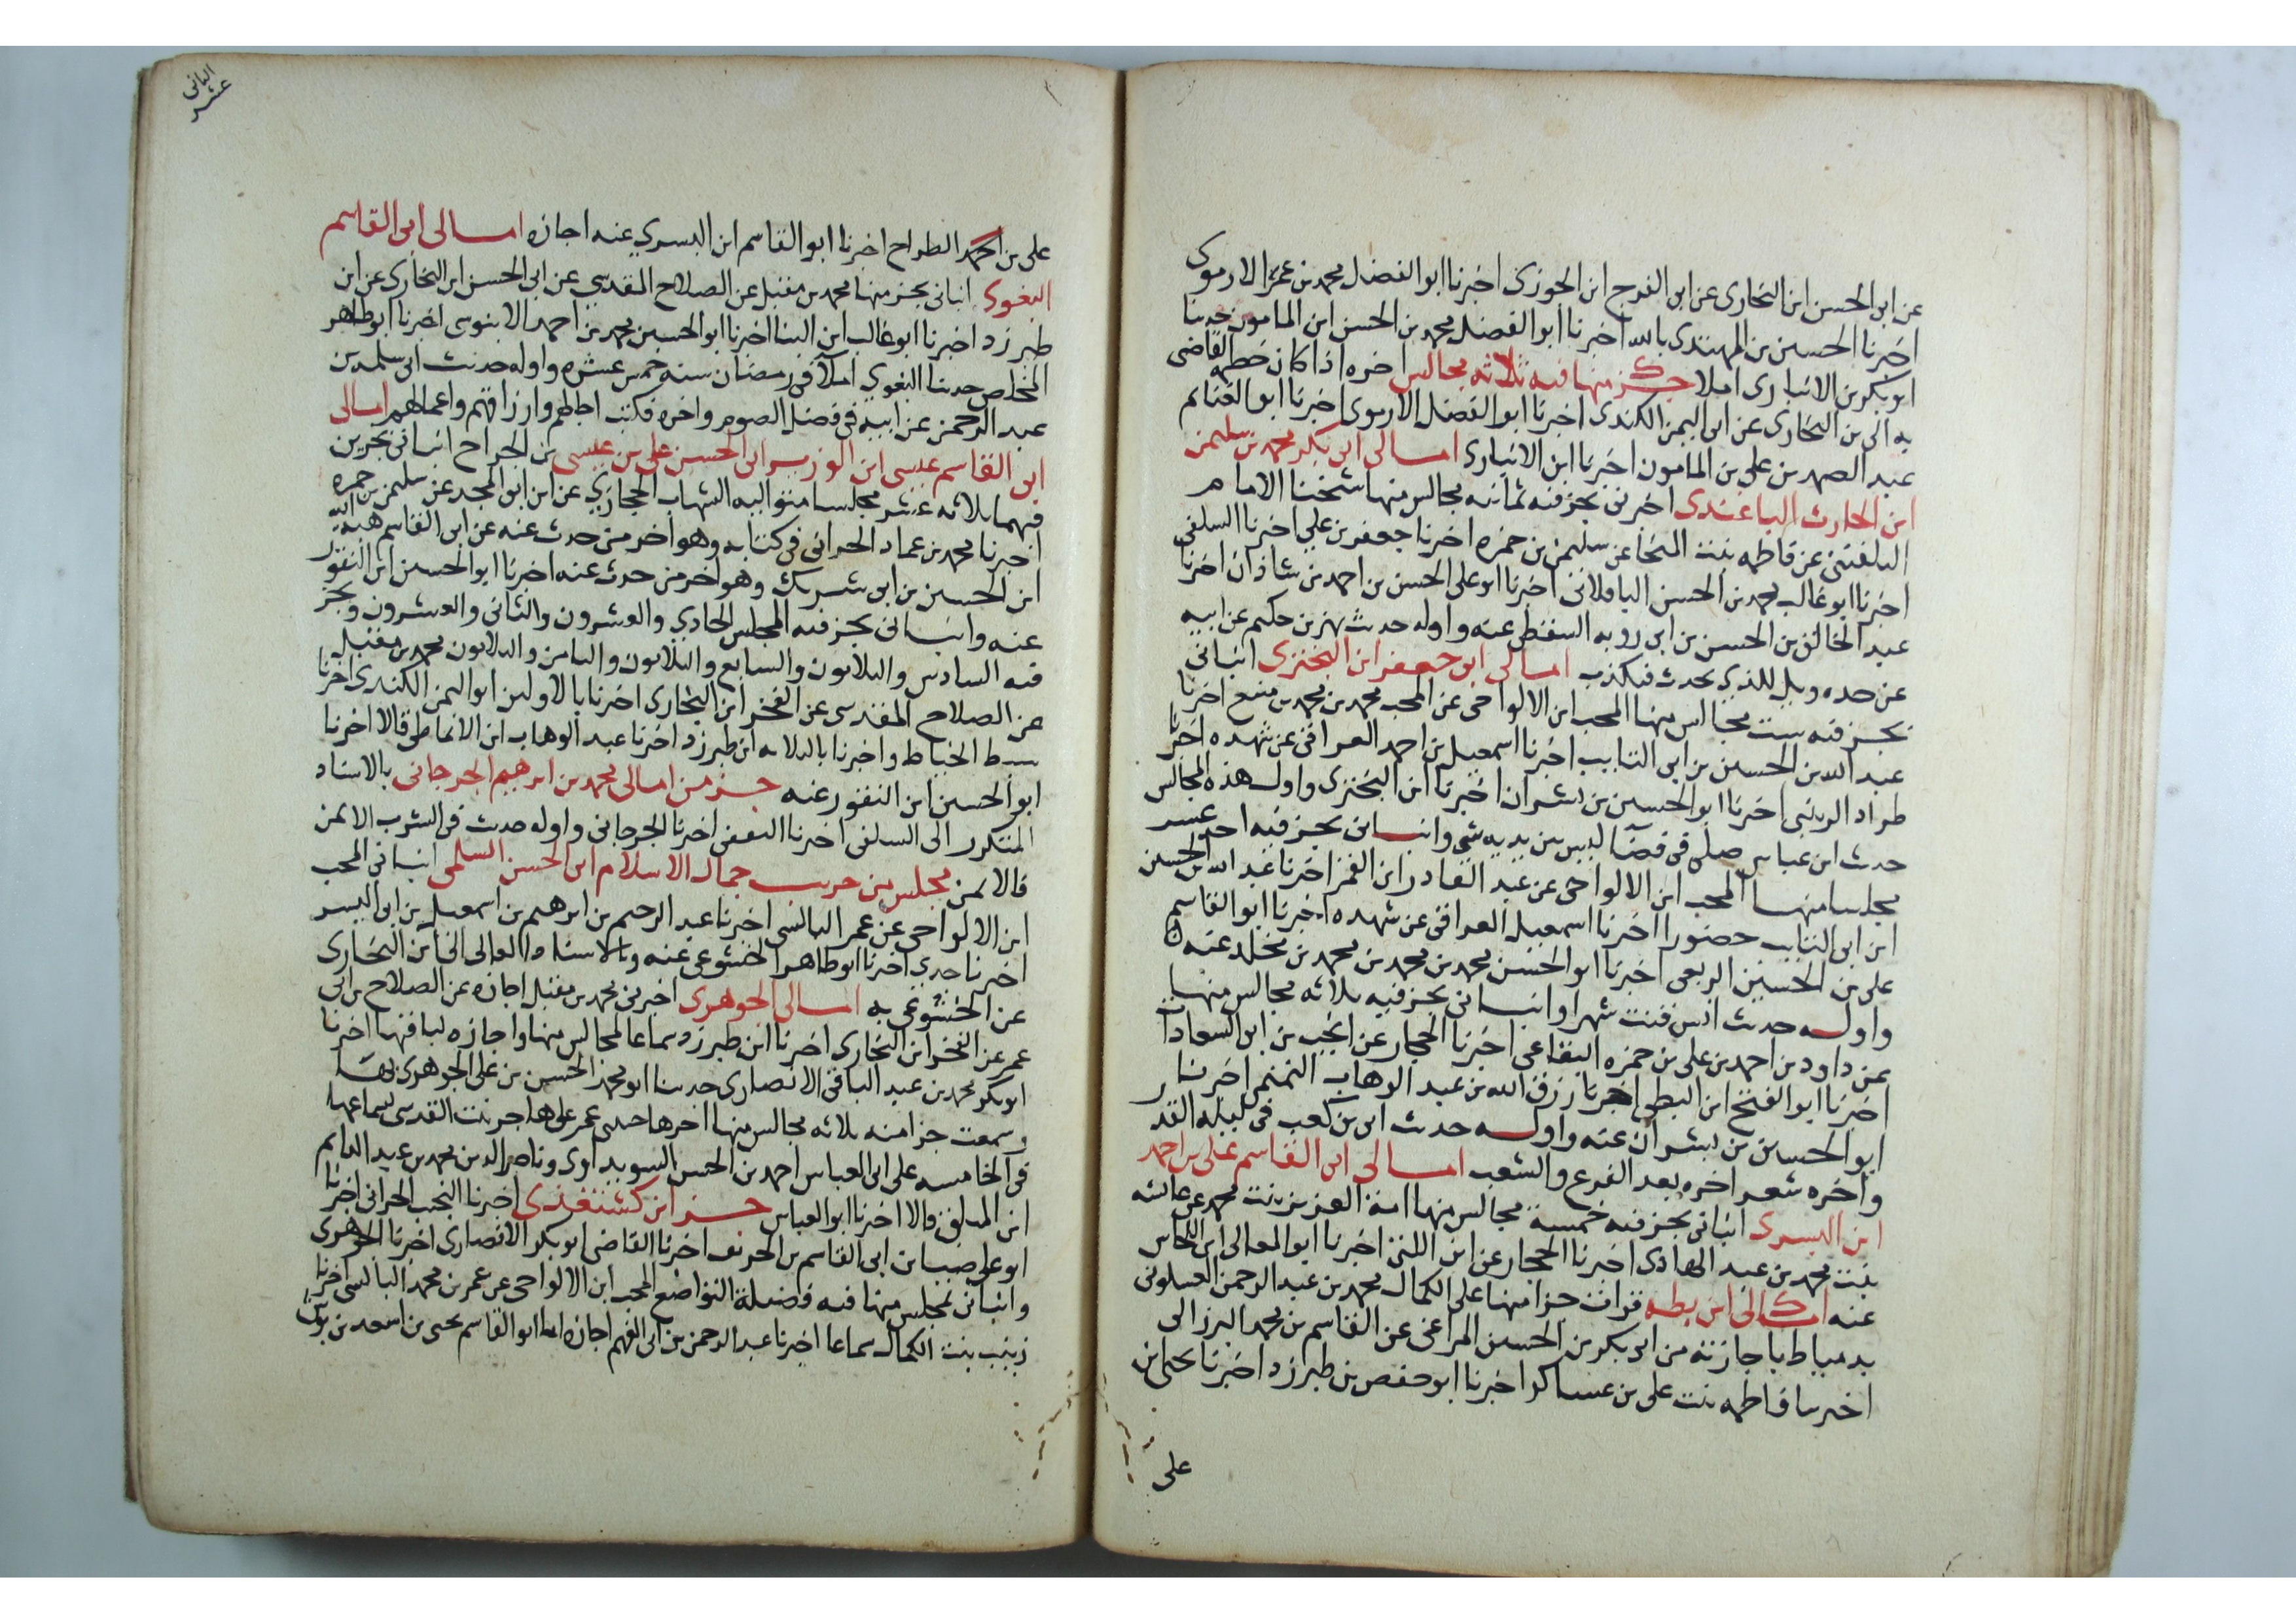 عن ابى الحسن ابن البخارى عن ابى الفرج ابن الجوزى اخبرنا ابو الفضل محمد بن عمر الارموى
اخبرنا الحسين بن المهتدى بالله اخبرنا ابو الفضل محمد بن الحسن ابن المامون حدثنا
ابو بكر بن الانبارى املا جزء منها فيه ثلاثه مجالس اخره اذا كان خصم القاضى
به الى بن البخارى عن ابى اليمن الكندى اخبرنا ابو الفضل الارموى اخبرنا ابو الغنايم
عبد الصمد بن على بن المامون اخبرنا ابن الانبارى امالى ابى بكر محمد بن سليمن
ابن الحارث الباغندى اخبرنى بجزء فيه ثمانيه مجالس منها شيخنا الامام
البلقينى عن فاطمه بنت المنجا عن سليمن بن حمزه اخبرنا جعفر بن على اخبرنا السلفى
اخبرنا ابو غالب محمد بن الحسن الباقلانى اخبرنا ابو على الحسن بن احمد بن شاذان اخبرنا
عبد الخالق بن الحسن بن ابى روبه السقطى عنه و اوله حديث بهز بن حكيم عن ابيه
عن جده ويل للذى يحدث فيكذب امالى ابى جعفر ابن البخترى انبانى
بجزء فيه ست مجالس منها المحب ابن الالواحى عن المحب محمد بن محمد بن منيع اخبرنا
عبد الله بن الحسين بن ابى التايب اخبرنا اسمعيل بن احمد العراقى عن شهده اخبرنا
طراد الزينبى اخبرنا ابو الحسين بن بشران اخبرنا ابن البخترى و اول هذه المجالس
حديث ابن عباس صلى فى فضا ليس بين يديه شى وانبانى بجزء فيه احد عشر
مجلسا منها المحب ابن الالواحى عن عبد القادر ابن القمر اخبرنا عبد الله بن الحسين
ابن ابى التايب حضورا اخبرنا اسمعيل العراقى عن شهده اخبرنا ابو القاسم
على بن الحسين الربعى اخبرنا ابو الحسن محمد بن محمد بن محمد بن مخلد عنه
واوله حديث انس قنت شهرا وانبانى بجزء فيه ثلاثه مجالس منها
عن داود بن احمد بن على بن حمزه البقاعى اخبرنا الحجار عن انجب بن ابى السعادات
اخبرنا ابو الفتح ابن البطى اخبرنا رزق الله بن عبد الوهاب التميمى اخبرنا
ابو الحسين بن بشران عنه واوله حديث ابى بن كعب فى ليله القدر
واخره شعر اخره بعد الفرع والشعب امالى ابى القاسم على بن احمد
ابن البسرى انبانى بجزء فيه خمسة مجالس منها امة العزيز بنت محمد عن عائشه
بنت محمد بن عبد الهادى اخبرنا الحجار عن ابن اللتى اخبرنا ابو المعالى ابن النحاس
عنه امالى ابن بطه قرات جزا منها على الكمال محمد بن عبد الرحمن العسلونى
بدمياط باجازته من ابى بكر بن الحسين المراغى عن القاسم بن محمد البرزالى
اخبرتنا فاطمه بنت على بن عساكر اخبرنا ابو حفص بن طبرزد اخبرنا يحيى ابن
على
الثانى
عشر
على بن محمد الطراح اخبرنا ابو القاسم ابن البسرى عنه اجازه امالى ابى القاسم
البغوى انبانى بجزء منها محمد بن مقبل عن الصلاح المقدسى عن ابى الحسن ابن البخارى عن ابن
طبرزد اخبرنا ابو غالب ابن البنا اخبرنا ابو الحسين محمد بن احمد الابنوسى اخبرنا ابو طاهر
المخلص حدثنا البغوى املا فى رمضان سنه خمس عشره واوله حديث ابى سلمه بن
عبد الرحمن عن ابيه فى فضل الصوم واخره فكتب اجالهم وارزاقهم واعمالهم امالى
ابى القاسم عيسى ابن الوزير ابى الحسن على بن عيسى بن الجراح انبانى بجزءين
فيهما ثلاثه عشر مجلسا متواليه الشهاب الحجازى عن ابن ابى المجد عن سليمن بن حمزه
اخبرنا محمد بن عماد الحرانى فى كتابه وهو اخر من حدث عنه عن ابى القاسم هبه الله
ابن الحسين بن ابى شريك وهو اخر من حدث عنه اخبرنا ابو الحسين ابن النقور
عنه وانبانى بجزء فيه المجلس الحادى والعشرون والثانى والعشرون وبجزء
فيه السادس والثلاثون والسابع والثلاثون والثامن والثلاثون محمد بن مقبل
عن الصلاح المقدسى عن الفخر ابن البخارى اخبرنا بالاولين ابو اليمن الكندى اخبرنا
سبط الخياط واخبرنا بالثلاثه ابن طبرزد اخبرنا عبد الوهاب ابن الانماطى قالا اخبرنا
ابو الحسين ابن النقور عنه جزء من امالى محمد بن ابرهيم الجرجانى بالاسناد
المتكرر الى السلفى اخبرنا الثقفى اخبرنا الجرجانى واوله حديث فى الشرب الايمن
فالايمن مجلس من حديث جمال الاسلام ابى الحسن السلمى انبانى المحب
ابن الالواحى عن عمر البالسى اخبرنا عبد الرحيم بن ابرهيم بن اسمعيل بن ابى اليسر
اخبرنا جدى اخبرنا ابو طاهر الخشوعى عنه وبالاسناد العالى الى ابن البخارى
عن الخشوعى به امالى الجوهرى اخبرنى محمد بن مقبل اجازه عن الصلاح بن ابى
عمر عن الفخر ابن البخارى اخبرنا ابن طبرزد سماعا لمجالس منها واجازه لباقيها اخبرنا
ابو بكر محمد بن عبد الباقى الانصارى حدثنا ابو محمد الحسن بن على الجوهرى بها
وسمعت جزا منه ثلاثه مجالس منها اخرها على هاجر بنت القدسى بسماعها
فى الخامسه على ابى العباس احمد بن الحسن السويداوى وناصر الدين محمد بن عبد الدايم
ابن الميلق قالا اخبرنا ابو العباس جزء ابن كشتغدى اخبرنا النجيب الحرانى اخبرنا
ابو على ضيا بن ابى القاسم بن الخريف اخبرنا القاضى ابو بكر الانصارى اخبرنا الجوهرى
وانبانى بمجلس منها فيه فضيلة التواضع المحب ابن الالواحى عن عمر بن محمد البالسى اخبرتنا
زينب بنت الكمال سماعا اخبرنا عبد الرحمن بن ابى الفهم اجازه انا ابو القاسم يحيى بن اسعد بن بوش